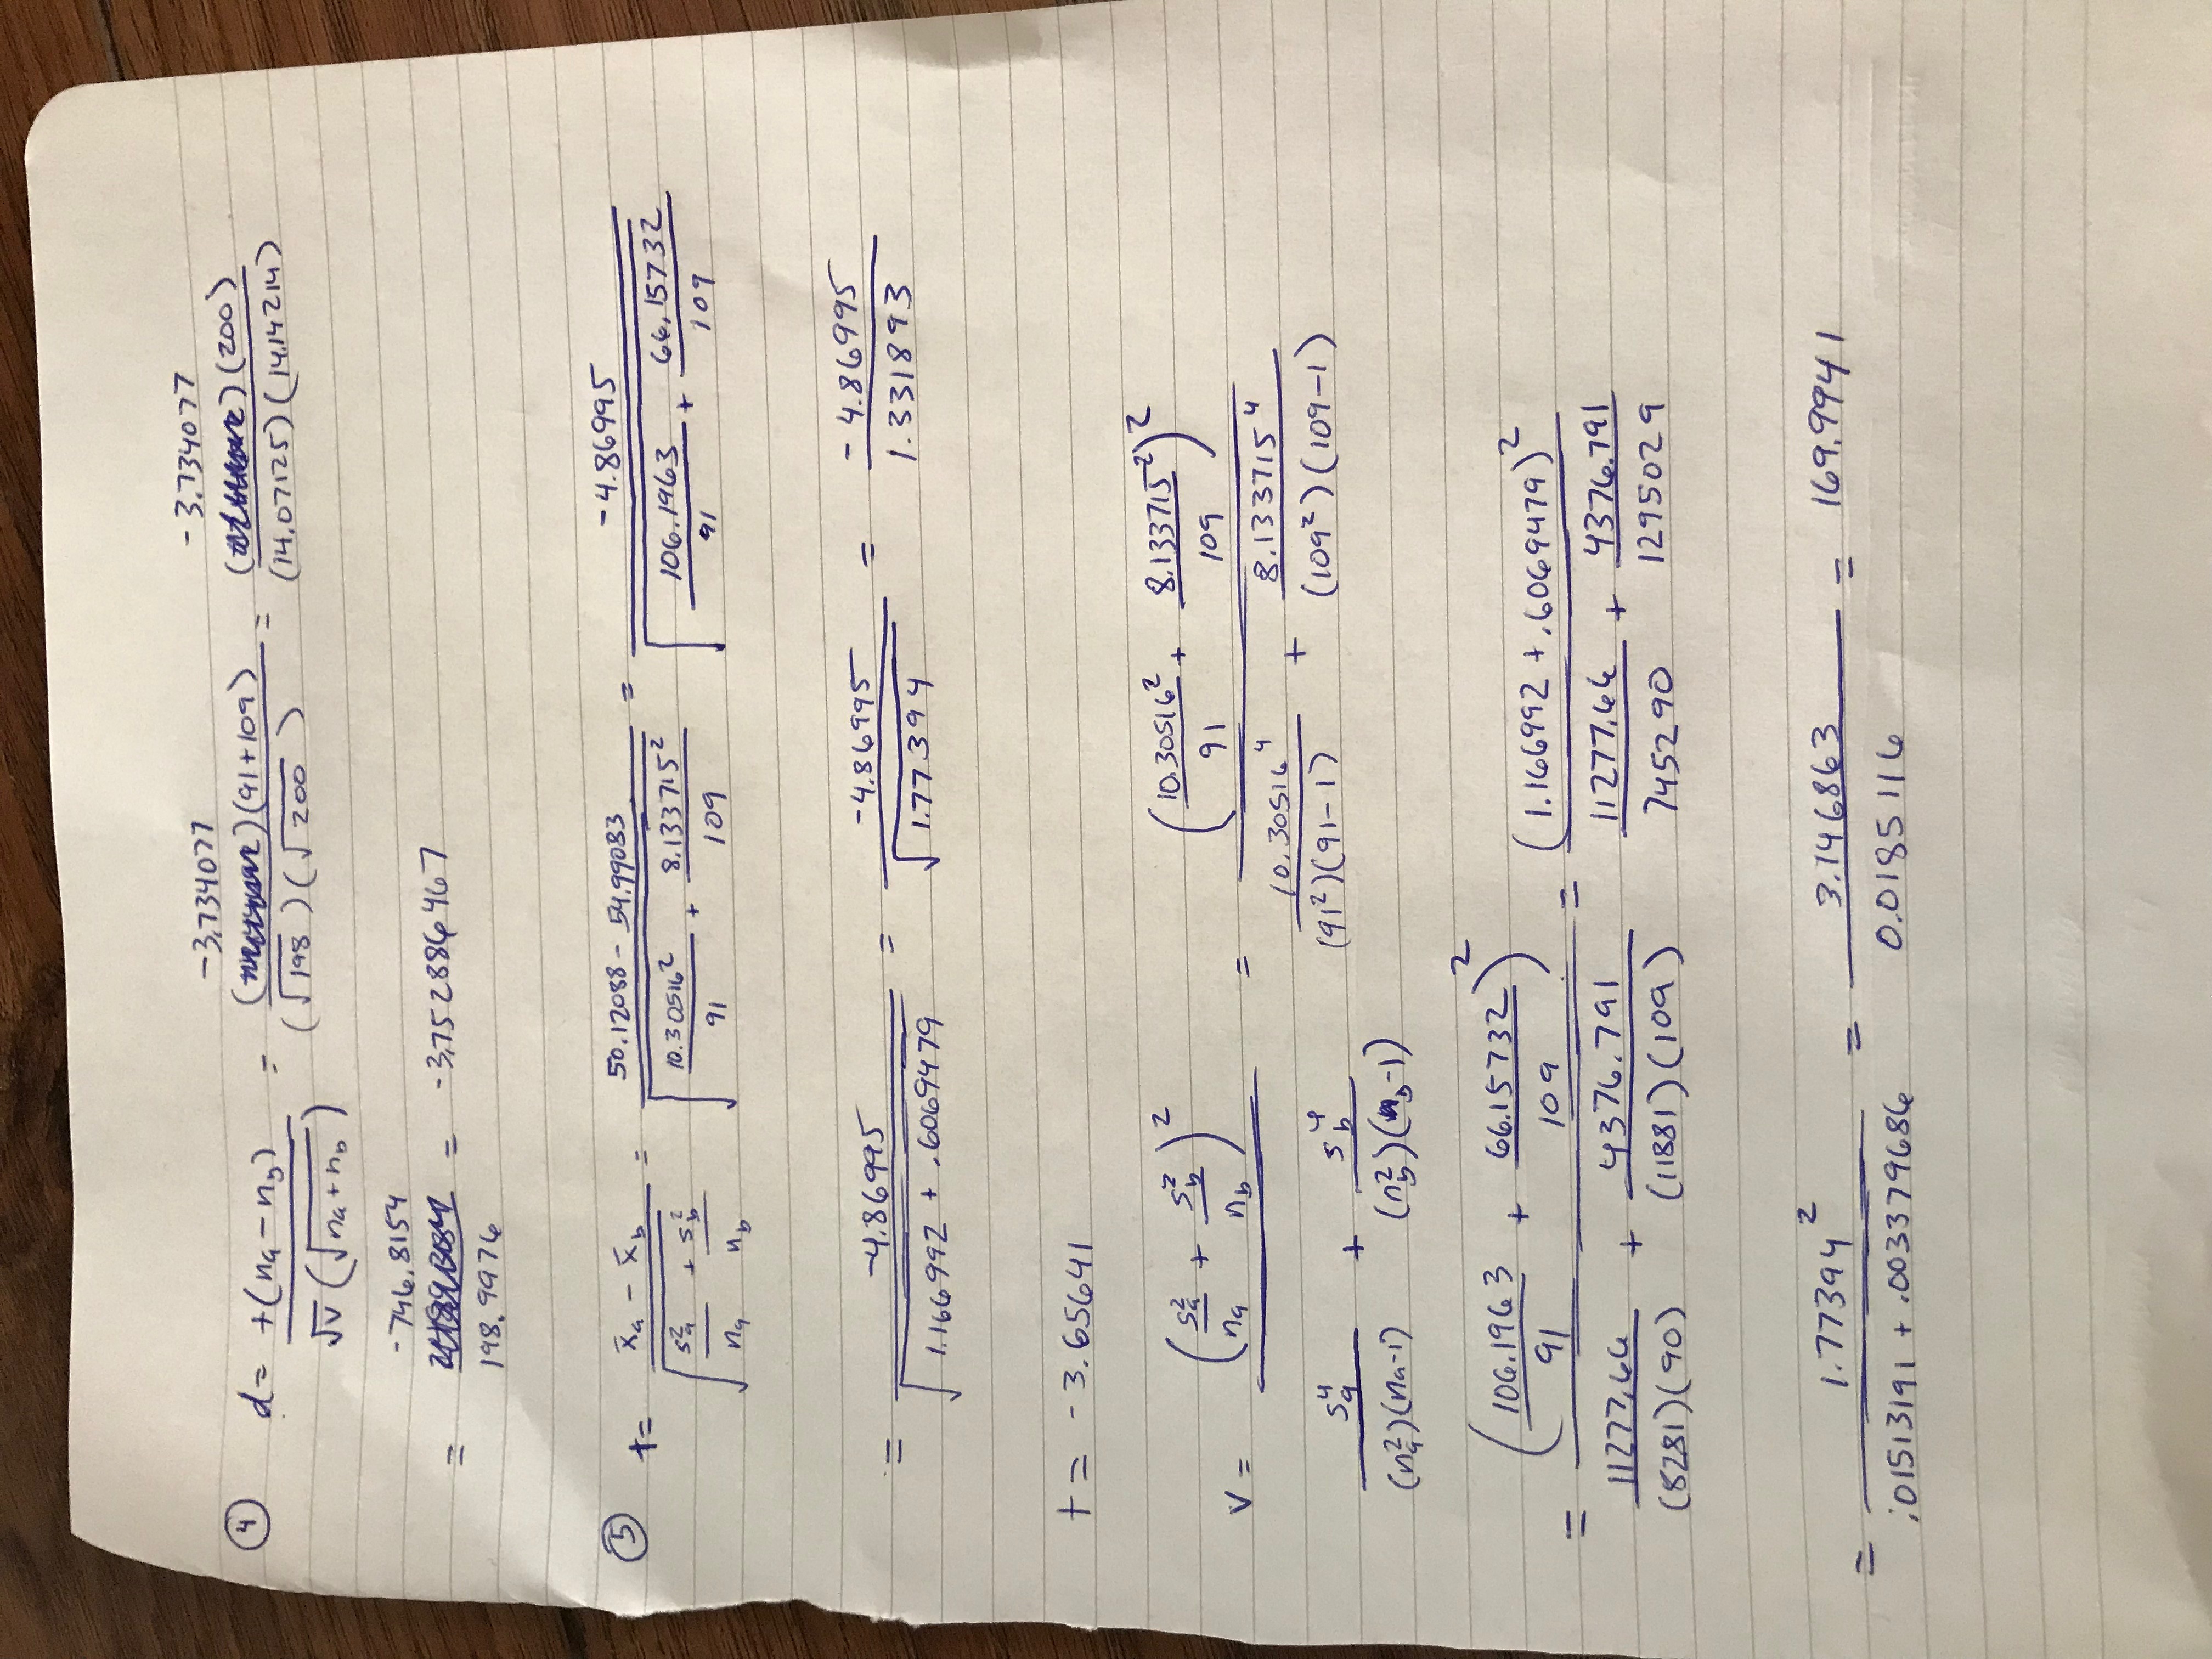 ④ d = t(na - nb) / √v (√na + nb) = (-3.734077)(91+109) / (√198)(√200) = (-3.734077)(200) / (14.07125)(14.14214)
= -746.8154 / 198.9976 = -3.752886467
⑤ t = x̄a - x̄b / √(s²a/na + s²b/nb) = 50.12088 - 54.99083 / √(10.30516²/91 + 8.133715²/109) = -4.86995 / √(106.1963/91 + 66.15732/109)
= -4.86995 / √(1.166992 + .6069479) = -4.86995 / √1.77394 = -4.86995 / 1.331893
t = -3.65641
v = (s²a/na + s²b/nb)² / (s⁴a/(n²a)(na-1) + s⁴b/(n²b)(nb-1)) = (10.30516²/91 + 8.133715²/109)² / (10.30516⁴/(91²)(91-1) + 8.133715⁴/(109²)(109-1))
= (106.1963/91 + 66.15732/109)² / (11277.66/(8281)(90) + 4376.791/(11881)(109)) = (1.166992 + .6069479)² / (11277.66/745290 + 4376.791/1295029)
= 1.77394² / .01513191 + .003379686 = 3.146863 / 0.0185116 = 169.9941